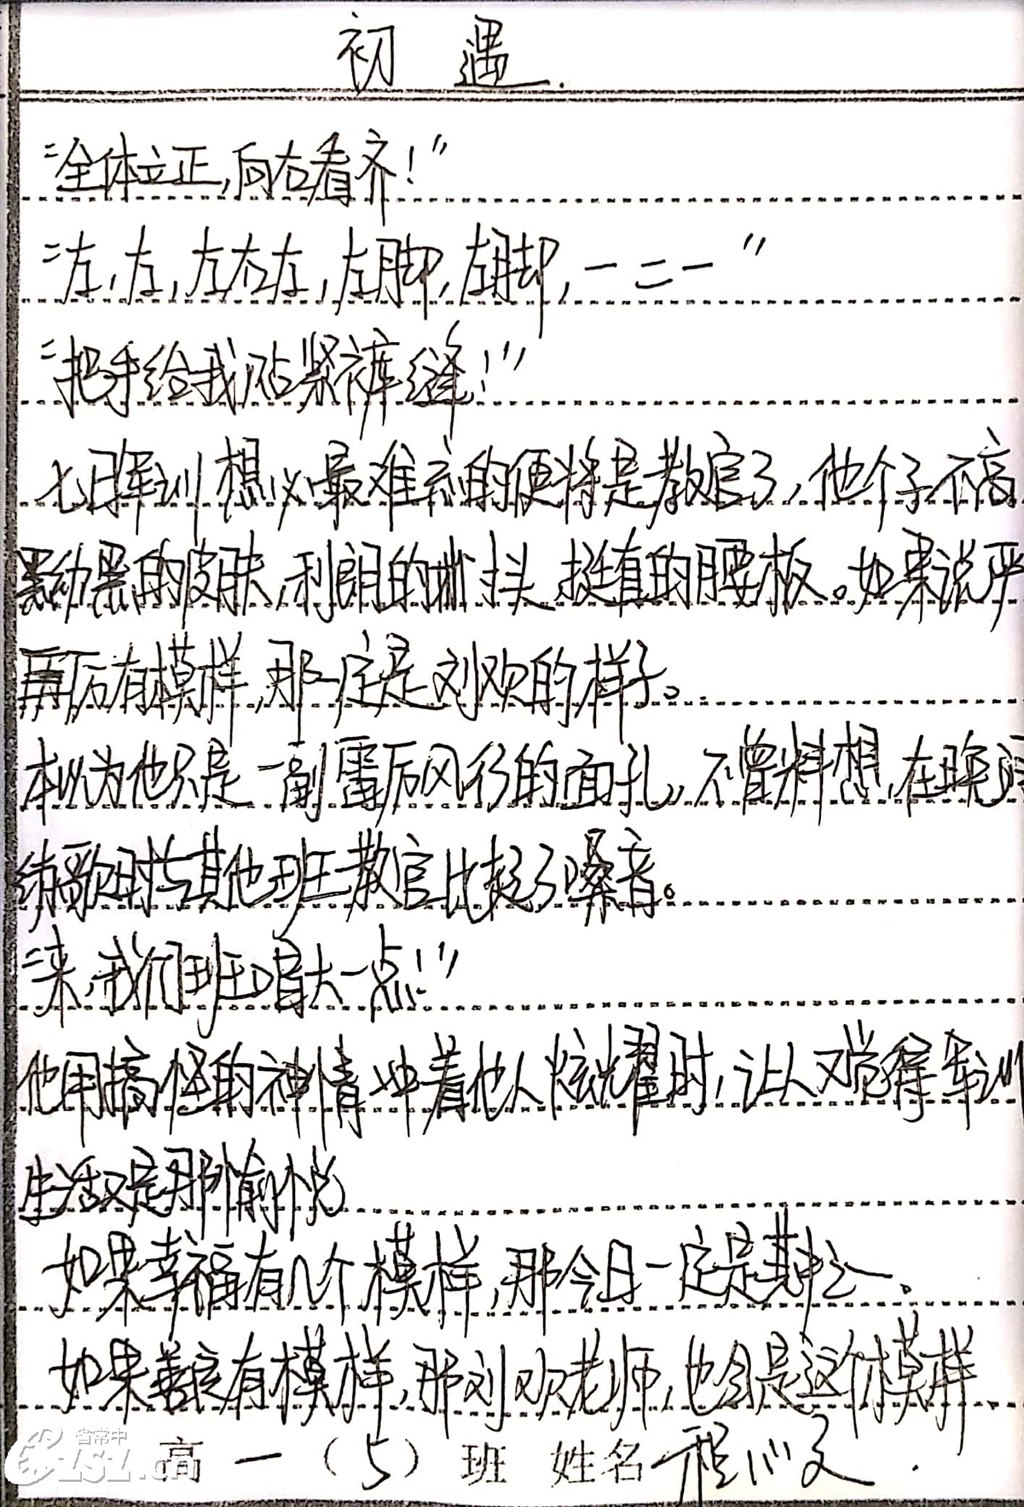 初遇.
“全体立正,向右看齐!”
“左,左,左右左,左脚,左脚,一二一”
“把手给我贴紧裤缝!”
七日军训想必最难忘的便将是教官了,他个子不高
黝黑的皮肤,利朗的寸头,挺直的腰板。如果说严
厉有模样,那一定是刘欢的样子。
本以为他只是一副雷厉风行的面孔,不曾料想,在晚间
绕歌时与其他班教官比起了嗓音。
“来,我们班唱大一点!”
他用搞怪的神情冲着他人炫耀时,让人又觉得军训
生活又是那愉悦
如果幸福有几个模样,那今日一定是其中之一。
如果善良有模样,那刘欢老师,也会是这个模样
高一(5)班 姓名 程心文.
省常中
CZSZ.cn